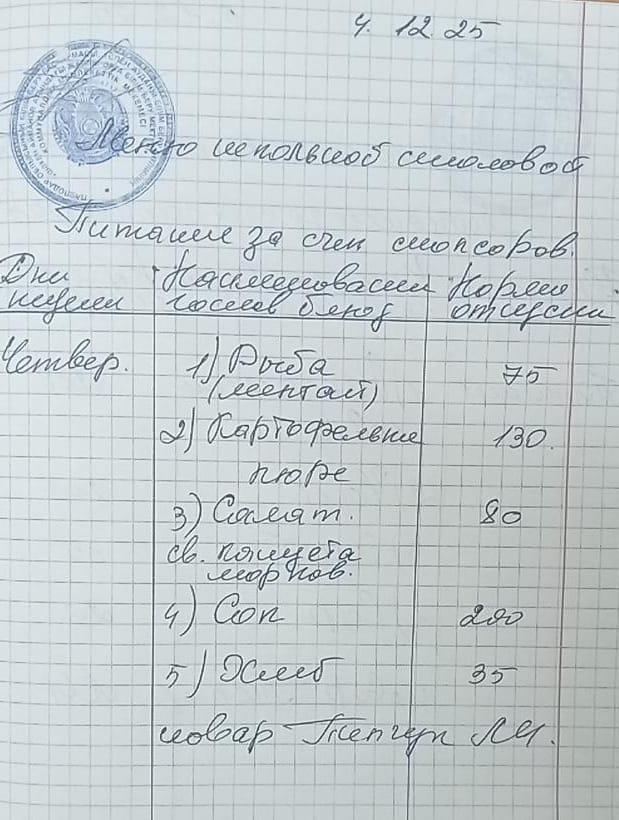 4. 12. 25
Меню школьной столовой
Питание за счет спонсоров.
Дни недели
Наименование готовых блюд
Норма
Четвер.
1) Рыба 75
(минтай)
2) Картофельное 130.
пюре
3) Салат. 80
св. капуста
морков.
4) Сок 200
5) Хлеб 35
повар